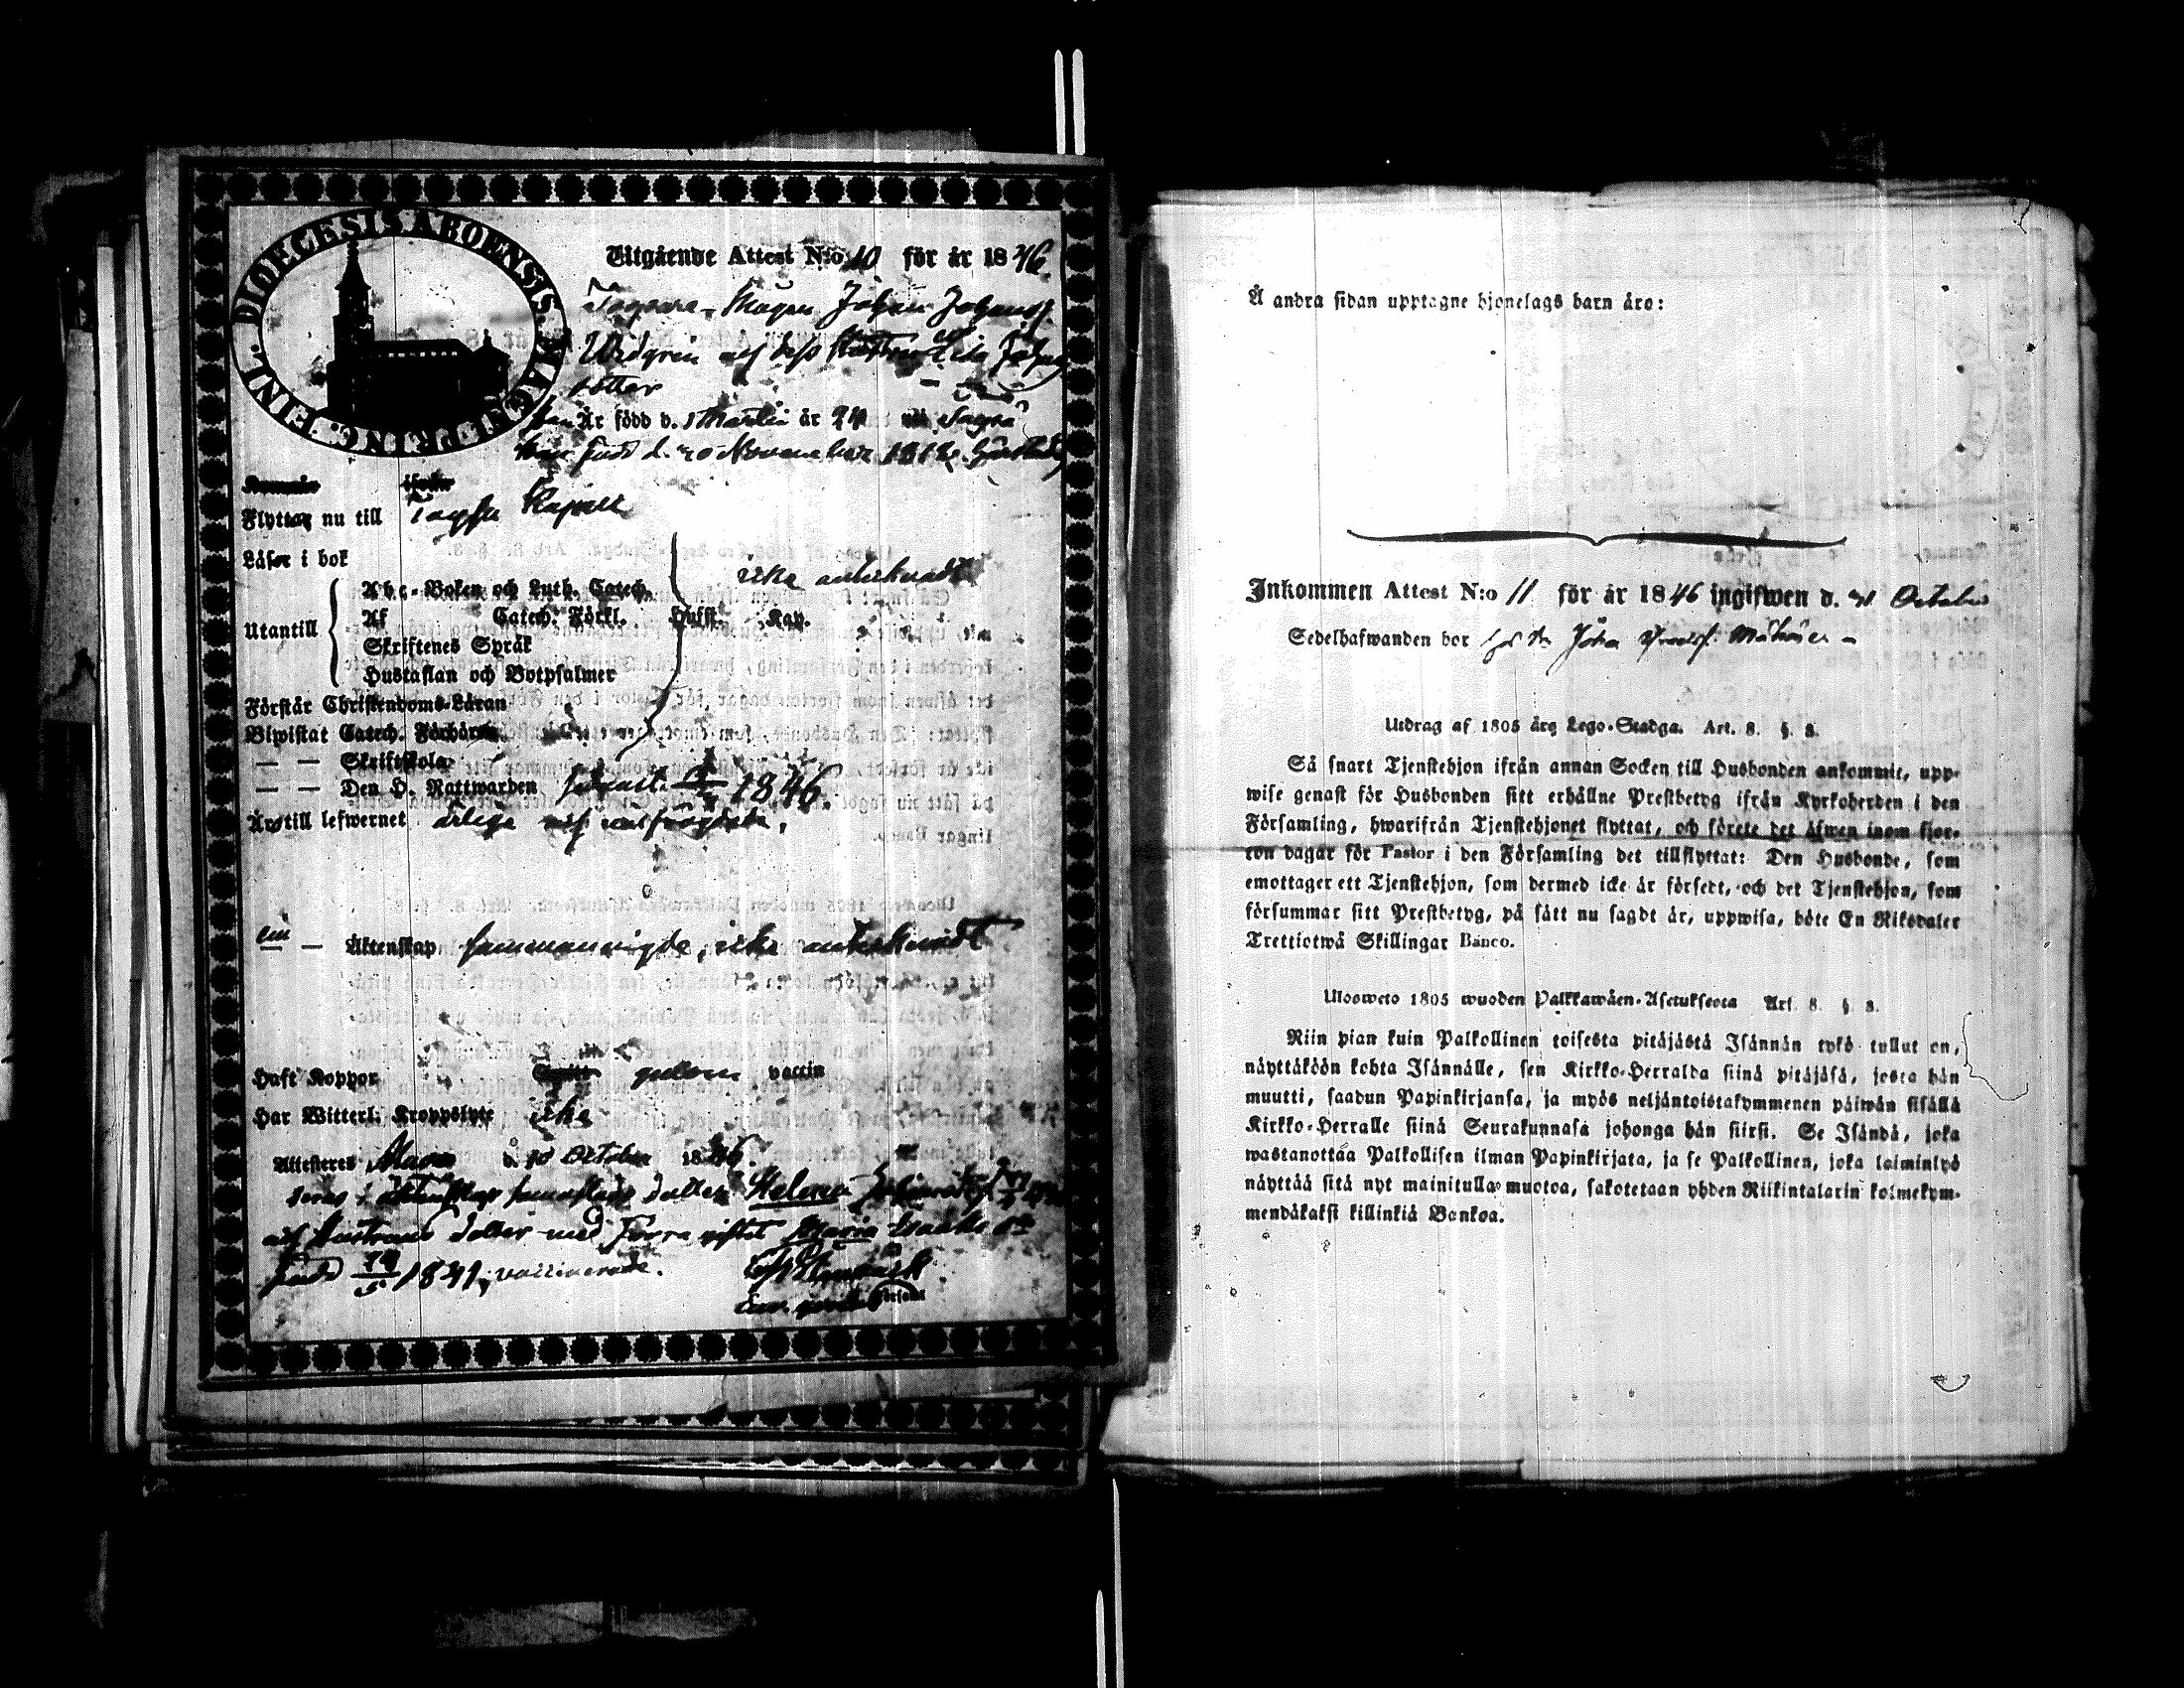 DIOECESIS ABOENSIS. MAGN. PRINC. FINL.
Utgående Attest N:o 10 för år 1846.
Johan Johanss.
Widgren och dess Hustru Johans
dotter
Han Är född d. 1 Martii år 24
född d. 20 November 1812
Flyttar nu till Kapell
Läser i bok
icke antecknadt
Utantill
Abc-Boken och Luth. Catech.
Af Catech. Förkl. Hufst. Kap.
Skriftenes Språk
Hustaflan och Botpsalmer
Förstår Christendoms-Läran
Biwistat Catech. Förhören
— — Skriftskola
— — Den H. Nattwarden senast 1846
Är till lefwernet ärliga och
— Äktenskap sammanvigda, icke antecknadt
Haft Koppor genom vaccin
Har Witterl. Kroppslyte icke
Attesteres d. 10 October 1846.
deras i äktenskap dotter Helena
och hustruns dotter med Förra giftet Maria
född 19/5 1841, vaccinerade.
Å andra sidan upptagne hjonelags barn äro:
Inkommen Attest N:o 11 för år 1846 ingifwen d. 31 October
Sedelhafwanden bor
Utdrag af 1805 års Lego-Stadga. Art. 8. §. 8.
Så snart Tjenstehjon ifrån annan Socken till Husbonden ankommit, upp-
wise genast för Husbonden sitt erhållne Prestbetyg ifrån Kyrkoherden i den
Församling, hwarifrån Tjenstehjonet flyttat, och förete det äfwen inom fjor-
ton dagar för Pastor i den Församling det tillflyttat: Den Husbonde, som
emottager ett Tjenstehjon, som dermed icke är försedt, och det Tjenstehjon, som
försummar sitt Prestbetyg, på sätt nu sagdt är, uppwisa, böte En Riksdaler
Trettiotwå Skillingar Banco.
Ulosweto 1805 wuoden Palkkawäen-Asetuksesta Art. 8. §. 8.
Niin pian kuin Palkollinen toisesta pitäjästä Isännän tykö tullut on,
näyttäköön kohta Isännälle, sen Kirkko-Herralda siinä pitäjäsä, josta hän
muutti, saadun Papinkirjansa, ja myös neljäntoistakymmenen päiwän sisällä
Kirkko-Herralle siinä Seurakunnasa johonga hän siirsi. Se Isändä, joka
wastanottaa Palkollisen ilman Papinkirjata, ja se Palkollinen, joka laiminlyö
näyttää sitä nyt mainitulla muotoa, sakotetaan yhden Riikintalarin kolmekym-
mendäkaksi killinkiä Bankoa.